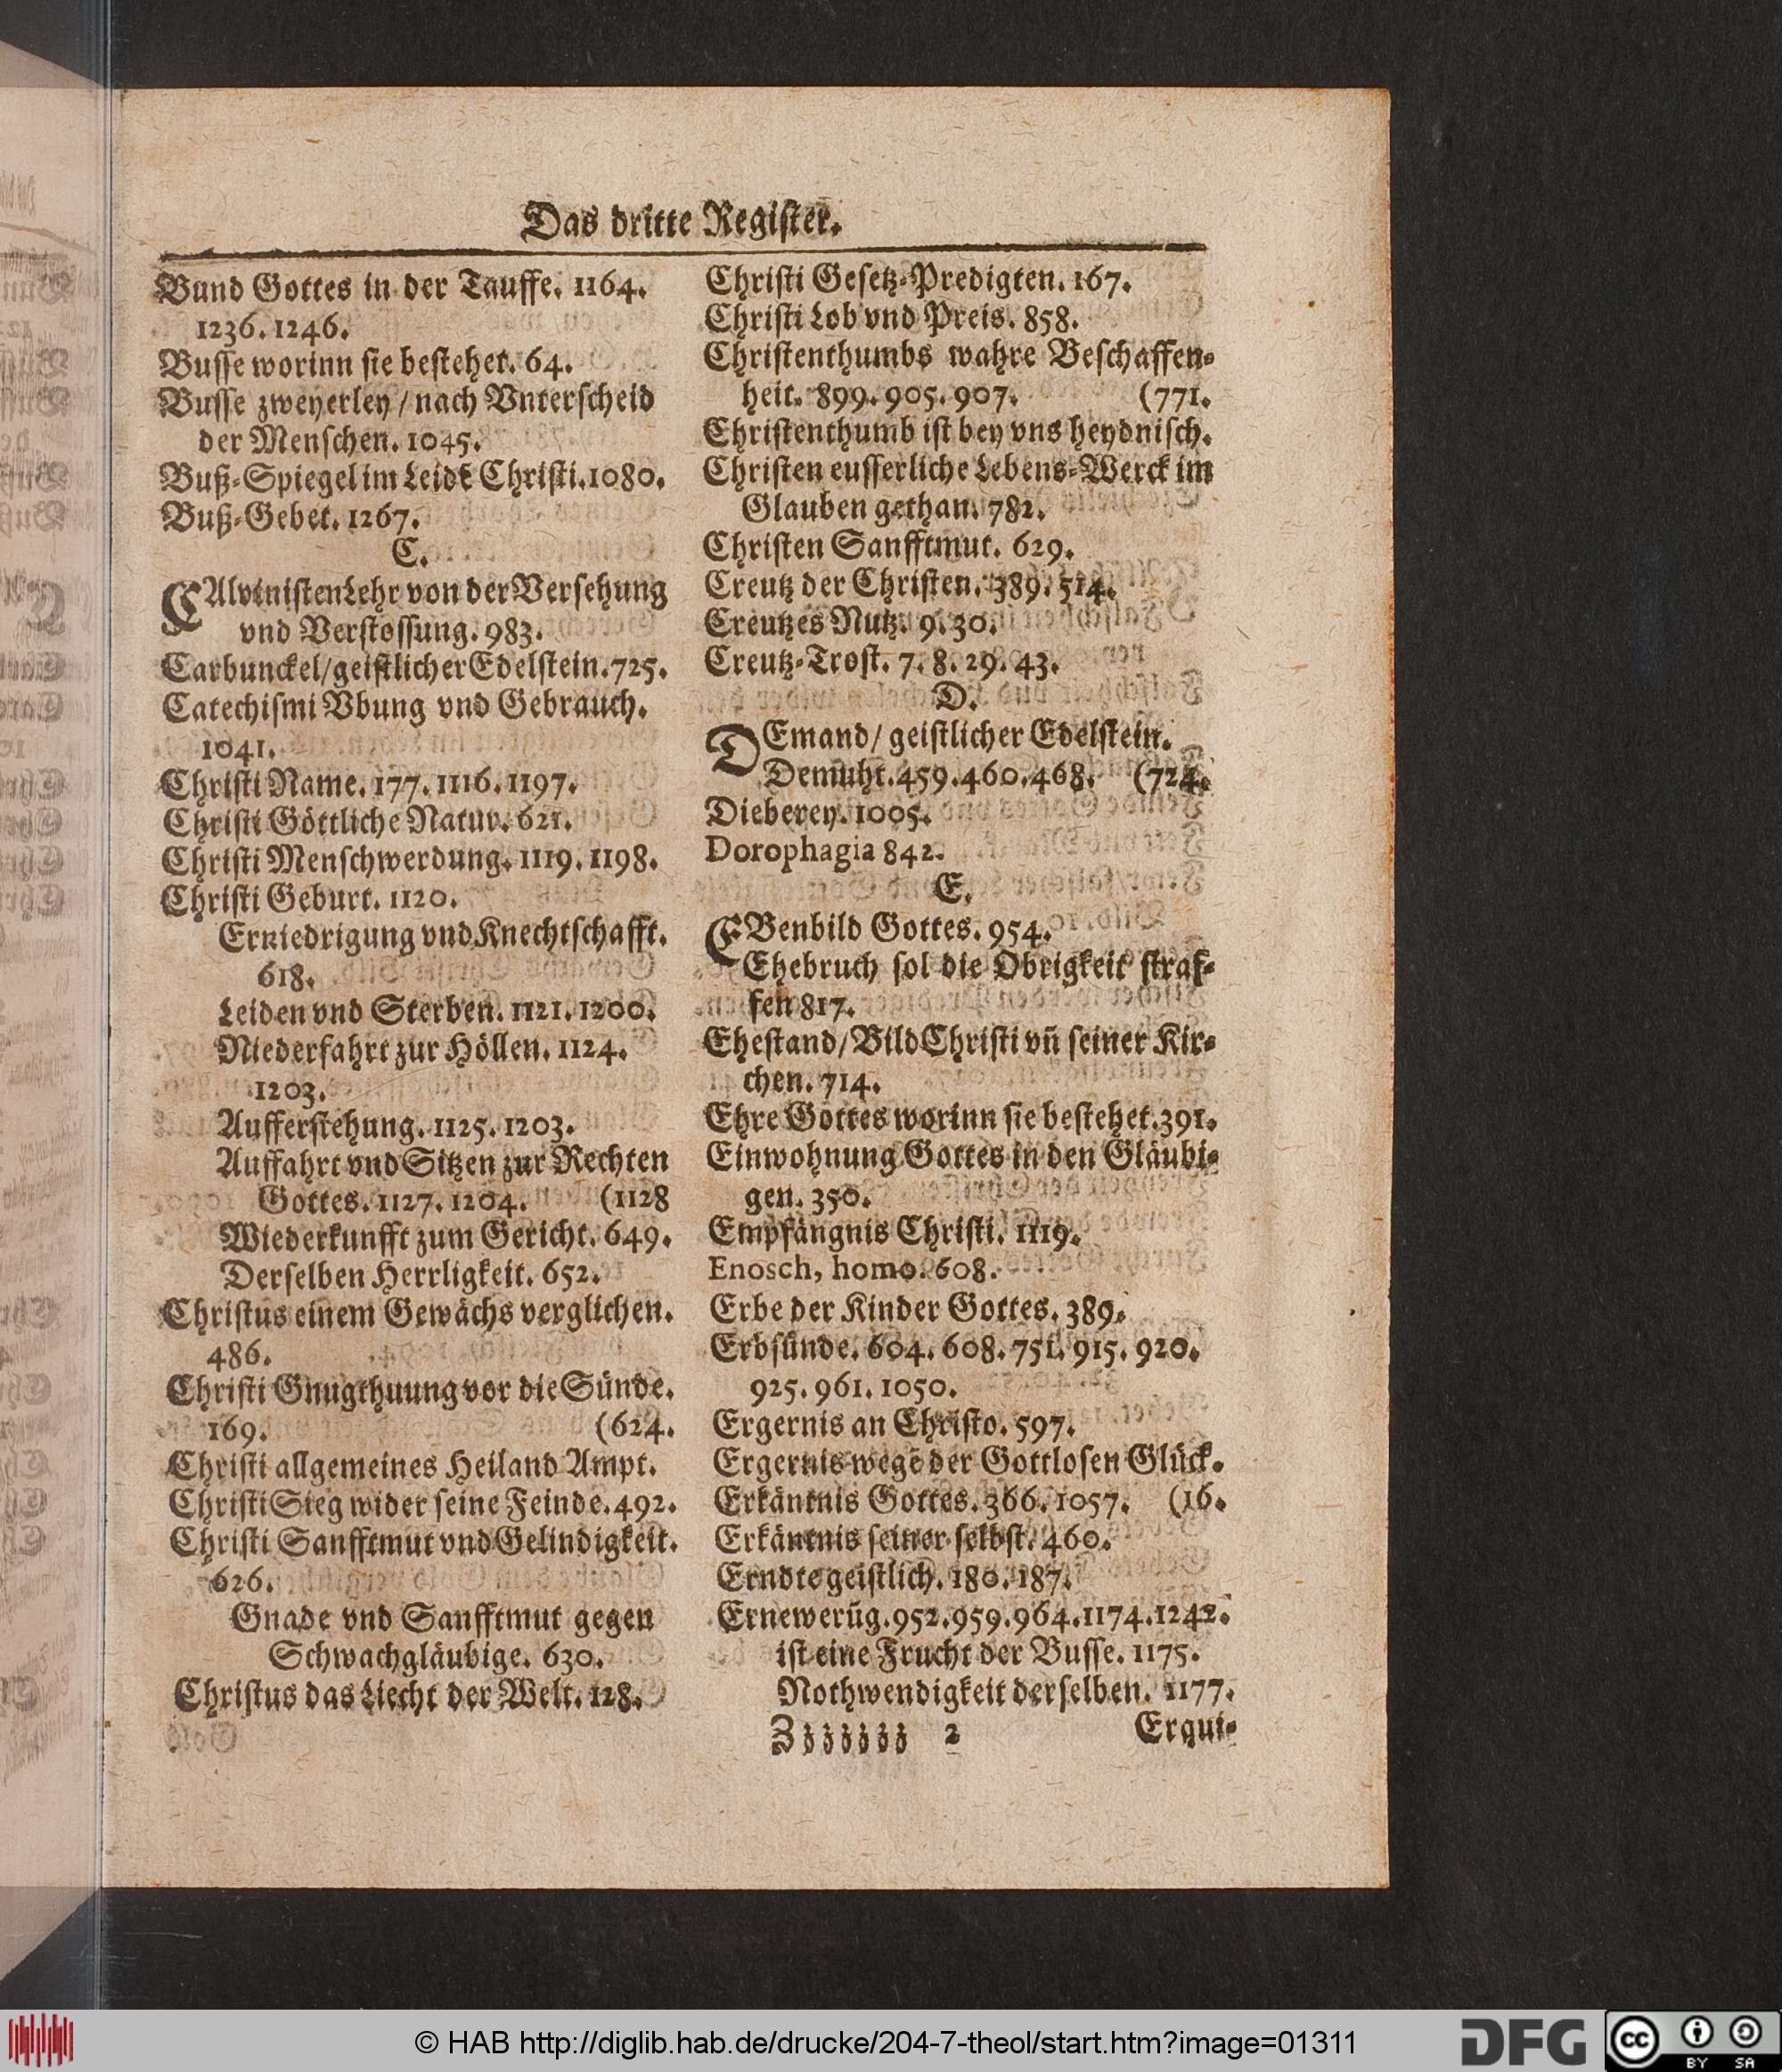 Das dritte Register.
Bund Gottes in der Tauffe. 1164.
1236. 1246.
Busse worinn sie bestehet. 64.
Busse zweyerley / nach Vnterscheid
der Menschen. 1045.
Buß-Spiegel im Leidẽ Christi. 1080.
Buß-Gebet. 1267.
C.
CAlvinisten Lehr von der Versehung
vnd Verstossung. 983.
Carbunckel/geistlicher Edelstein. 725.
Catechismi Vbung vnd Gebrauch.
1041.
Christi Name. 177. 1116. 1197.
Christi Göttliche Natur. 621.
Christi Menschwerdung. 1119. 1198.
Christi Geburt. 1120.
Erniedrigung vnd Knechtschafft.
618.
Leiden vnd Sterben. 1121. 1200.
Niederfahrt zur Höllen. 1124.
1203.
Aufferstehung. 1125. 1203.
Auffahrt vnd Sitzen zur Rechten
Gottes. 1127. 1204. (1128
Wiederkunfft zum Gericht. 649.
Derselben Herrligkeit. 652.
Christus einem Gewächs verglichen.
486.
Christi Gnugthuung vor die Sünde.
169. (624.
Christi allgemeines Heiland Ampt.
Christi Sieg wider seine Feinde. 492.
Christi Sanfftmut vnd Gelindigkeit.
626.
Gnade vnd Sanfftmut gegen
Schwachgläubige. 630.
Christus das Liecht der Welt. 128.
Christi Gesetz-Predigten. 167.
Christi Lob vnd Preis. 858.
Christenthumbs wahre Beschaffen-
heit. 899. 905. 907. (771.
Christenthumb ist bey vns heydnisch.
Christen eusserliche Lebens-Werck im
Glauben gethan. 782.
Christen Sanfftmut. 629.
Creutz der Christen. 389. 514.
Creutzes Nutz. 9. 30.
Creutz-Trost. 7. 8. 29. 43.
D.
DEmand / geistlicher Edelstein.
Demuht. 459. 460. 468. (724.
Dieberey. 1005.
Dorophagia 842.
E.
EBenbild Gottes. 954.
Ehebruch sol die Obrigkeit straf-
fen 817.
Ehestand/Bild Christi vñ seiner Kir-
chen. 714.
Ehre Gottes worinn sie bestehet. 391.
Einwohnung Gottes in den Gläubi-
gen. 350.
Empfängnis Christi. 1119.
Enosch, homo. 608.
Erbe der Kinder Gottes. 389.
Erbsünde. 604. 608. 751. 915. 920.
925. 961. 1050.
Ergernis an Christo. 597.
Ergernis wegẽ der Gottlosen Glück.
Erkäntnis Gottes. 366. 1057. (16.
Erkäntnis seiner selbst. 460.
Erndte geistlich. 180. 187.
Ernewerũg. 952. 959. 964. 1174. 1242.
ist eine Frucht der Busse. 1175.
Nothwendigkeit derselben. 1177.
Zzzzzzz 2 Erqui-
© HAB http://diglib.hab.de/drucke/204-7-theol/start.htm?image=01311
DFG
cc BY SA